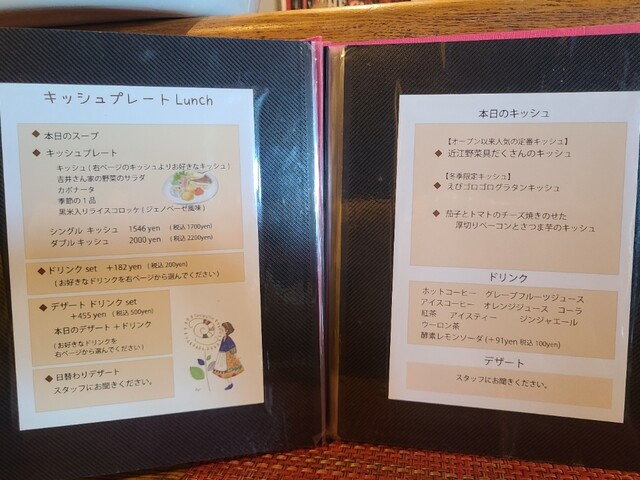 キッシュプレート Lunch
◆ 本日のスープ
◆ キッシュプレート
キッシュ ( 右ページのキッシュよりお好きなキッシュ )
吉井さん家の野菜のサラダ
カポナータ
季節の１品
黒米入りライスコロッケ ( ジェノベーゼ風味 )
シングル キッシュ 1546 yen ( 税込 1700yen )
ダブル キッシュ 2000 yen ( 税込 2200yen )
◆ ドリンク set +182 yen ( 税込 200yen )
( お好きなドリンクを右ページから選んでください )
◆ デザート ドリンク set
+455 yen ( 税込 500yen )
本日のデザート + ドリンク
( お好きなドリンクを
右ページから選んでください )
◆ 日替わりデザート
スタッフにお聞きください。
本日のキッシュ
【オープン以来人気の定番キッシュ】
◆ 近江野菜具だくさんのキッシュ
【冬季限定キッシュ】
◆ えびゴロゴログラタンキッシュ
◆ 茄子とトマトのチーズ焼きのせた
厚切りベーコンとさつま芋のキッシュ
ドリンク
ホットコーヒー グレープフルーツジュース
アイスコーヒー オレンジジュース コーラ
紅茶 アイスティー ジンジャエール
ウーロン茶
酵素レモンソーダ (+91yen 税込 100yen)
デザート
スタッフにお聞きください。